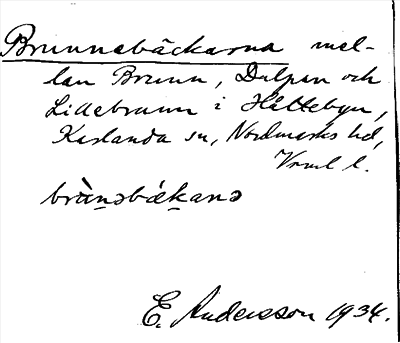 Brunnebäckarna mel-
lan Brunn, Dalpen och
Lillebrunn i Håltebyn,
Karlanda sn, Nordmarks hd,
Vrml l.
brùnəbǽkanə
E. Andersson 1934.